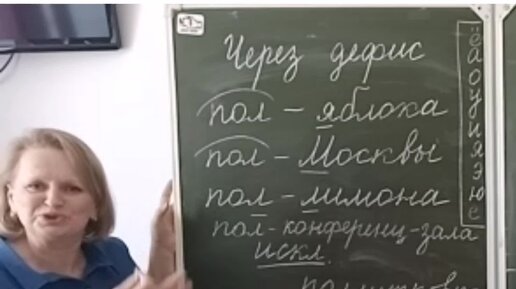 Через дефис
пол - яблока
пол - Москвы
пол - лимона
пол - конференц-зала
искл.
а о у ы и я э ю е